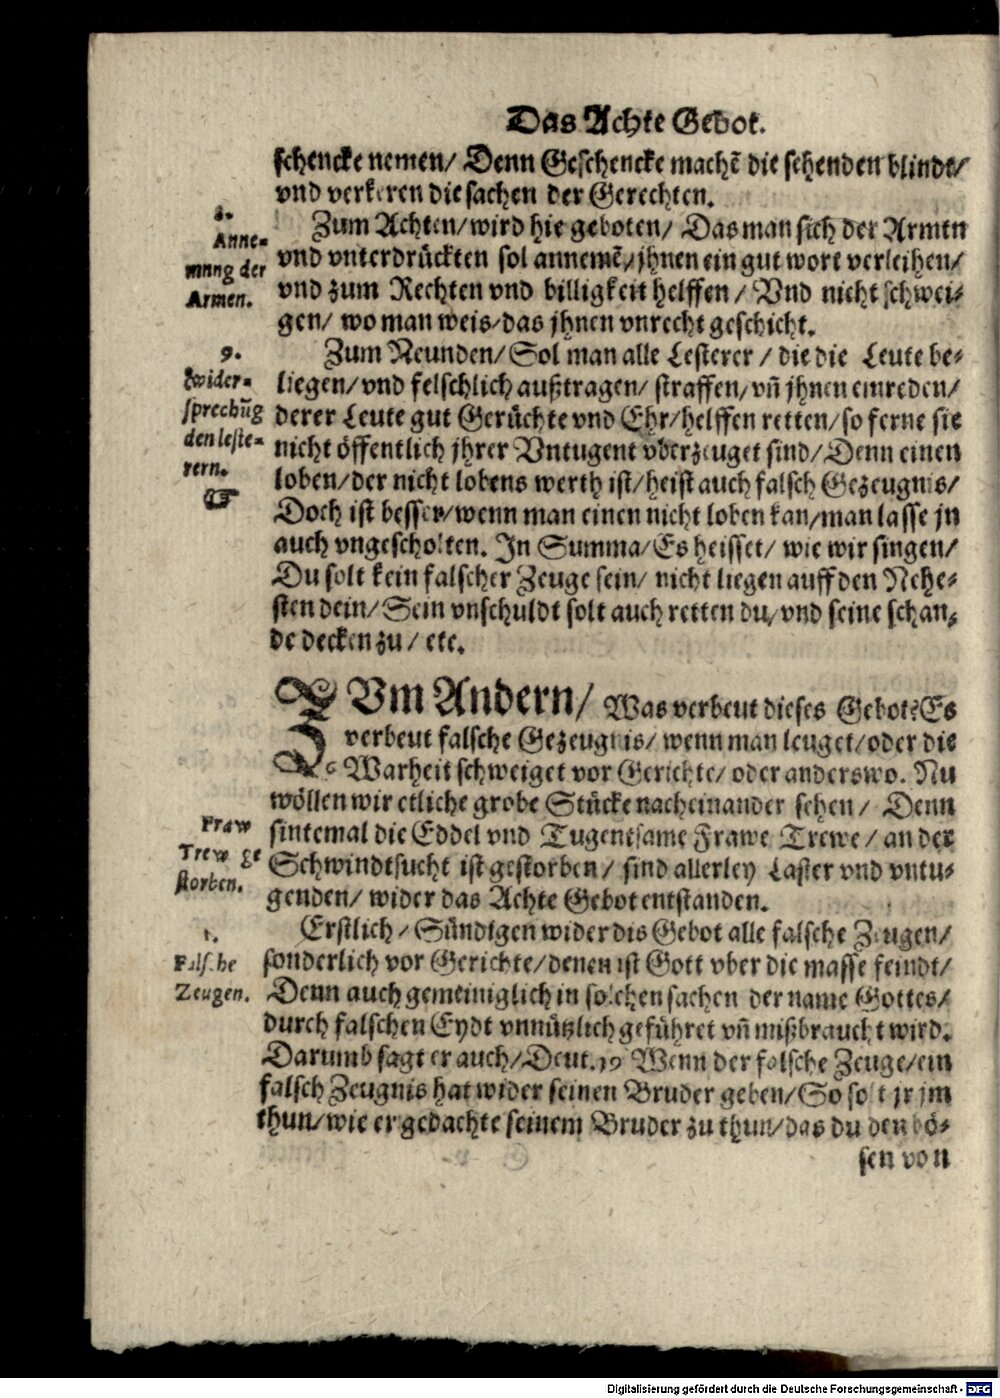 Das Achte Gebot.
schencke nemen/ Denn Geschencke machẽ die sehenden blindt/
vnd verkeren die sachen der Gerechten.
8.
Anne-
mung der
Armen.
Zum Achten/ wird hie geboten/ Das man sich der Armen
vnd vnterdrückten sol annemẽ/ jhnen ein gut wort verleihen/
vnd zum Rechten vnd billigkeit helffen/ Vnd nicht schwei-
gen/ wo man weis/ das jhnen vnrecht geschicht.
9.
Zwider-
sprechũg
den leste-
rern.
☞
Zum Neunden/ Sol man alle Lesterer/ die die Leute be-
liegen/ vnd felschlich außtragen/ straffen/ vñ jhnen einreden/
derer Leute gut Gerüchte vnd Ehr/ helffen retten/ so ferne sie
nicht öffentlich jhrer Vntugent vberzeuget sind/ Denn einen
loben/ der nicht lobens werth ist/ heist auch falsch Gezeugnis/
Doch ist besser/ wenn man einen nicht loben kan/ man lasse jn
auch vngescholten. In Summa/ Es heisset/ wie wir singen/
Du solt kein falscher Zeuge sein/ nicht liegen auff den Nehe-
sten dein/ Sein vnschuldt solt auch retten du/ vnd seine schan-
de decken zu/ etc.
ZVm Andern/ Was verbeut dieses Gebot? Es
verbeut falsche Gezeugnis/ wenn man leuget/ oder die
Warheit schweiget vor Gerichte/ oder anderswo. Nu
wöllen wir etliche grobe Stücke nacheinander sehen/ Denn
Fraw
Trew ge
storben.
sintemal die Eddel vnd Tugentsame Frawe Trewe/ an der
Schwindtsucht ist gestorben/ sind allerley Laster vnd vntu-
genden/ wider das Achte Gebot entstanden.
1.
Falsche
Zeugen.
Erstlich/ Sündigen wider dis Gebot alle falsche Zeugen/
sonderlich vor Gerichte/ denen ist Gott vber die masse feindt/
Denn auch gemeiniglich in solchen sachen der name Gottes/
durch falschen Eydt vnnützlich geführet vñ mißbraucht wird.
Darumb sagt er auch/ Deut. 19 Wenn der falsche Zeuge/ ein
falsch Zeugnis hat wider seinen Bruder geben/ So solt jr jm
thun/ wie er gedachte seinem Bruder zu thun/ das du den bö-
sen von
Digitalisierung gefördert durch die Deutsche Forschungsgemeinschaft - DFG